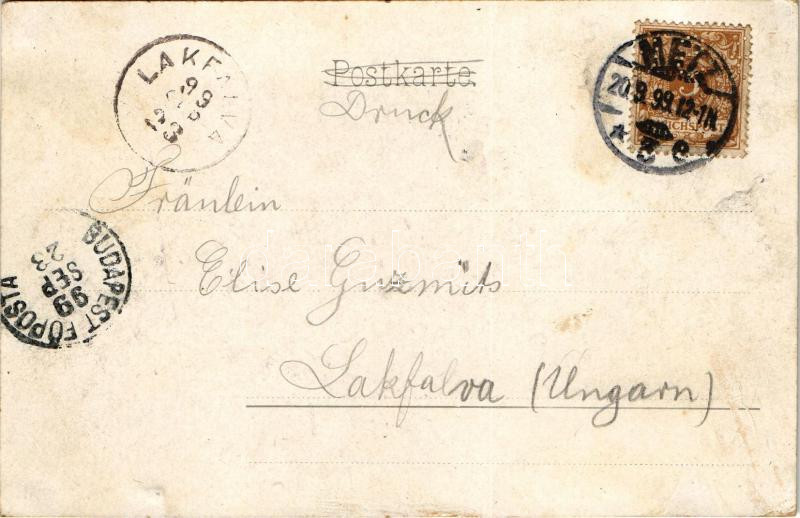 Postkarte
Druck
Fräulein
Elise Guzmits
Lakfalva (Ungarn)
LAKFALVA
99
SEP
23
METZ
20.9.99.12-1N.
* 3 e *
3
REICHSPOST
BUDAPEST FŐPOSTA
99
SEP
23